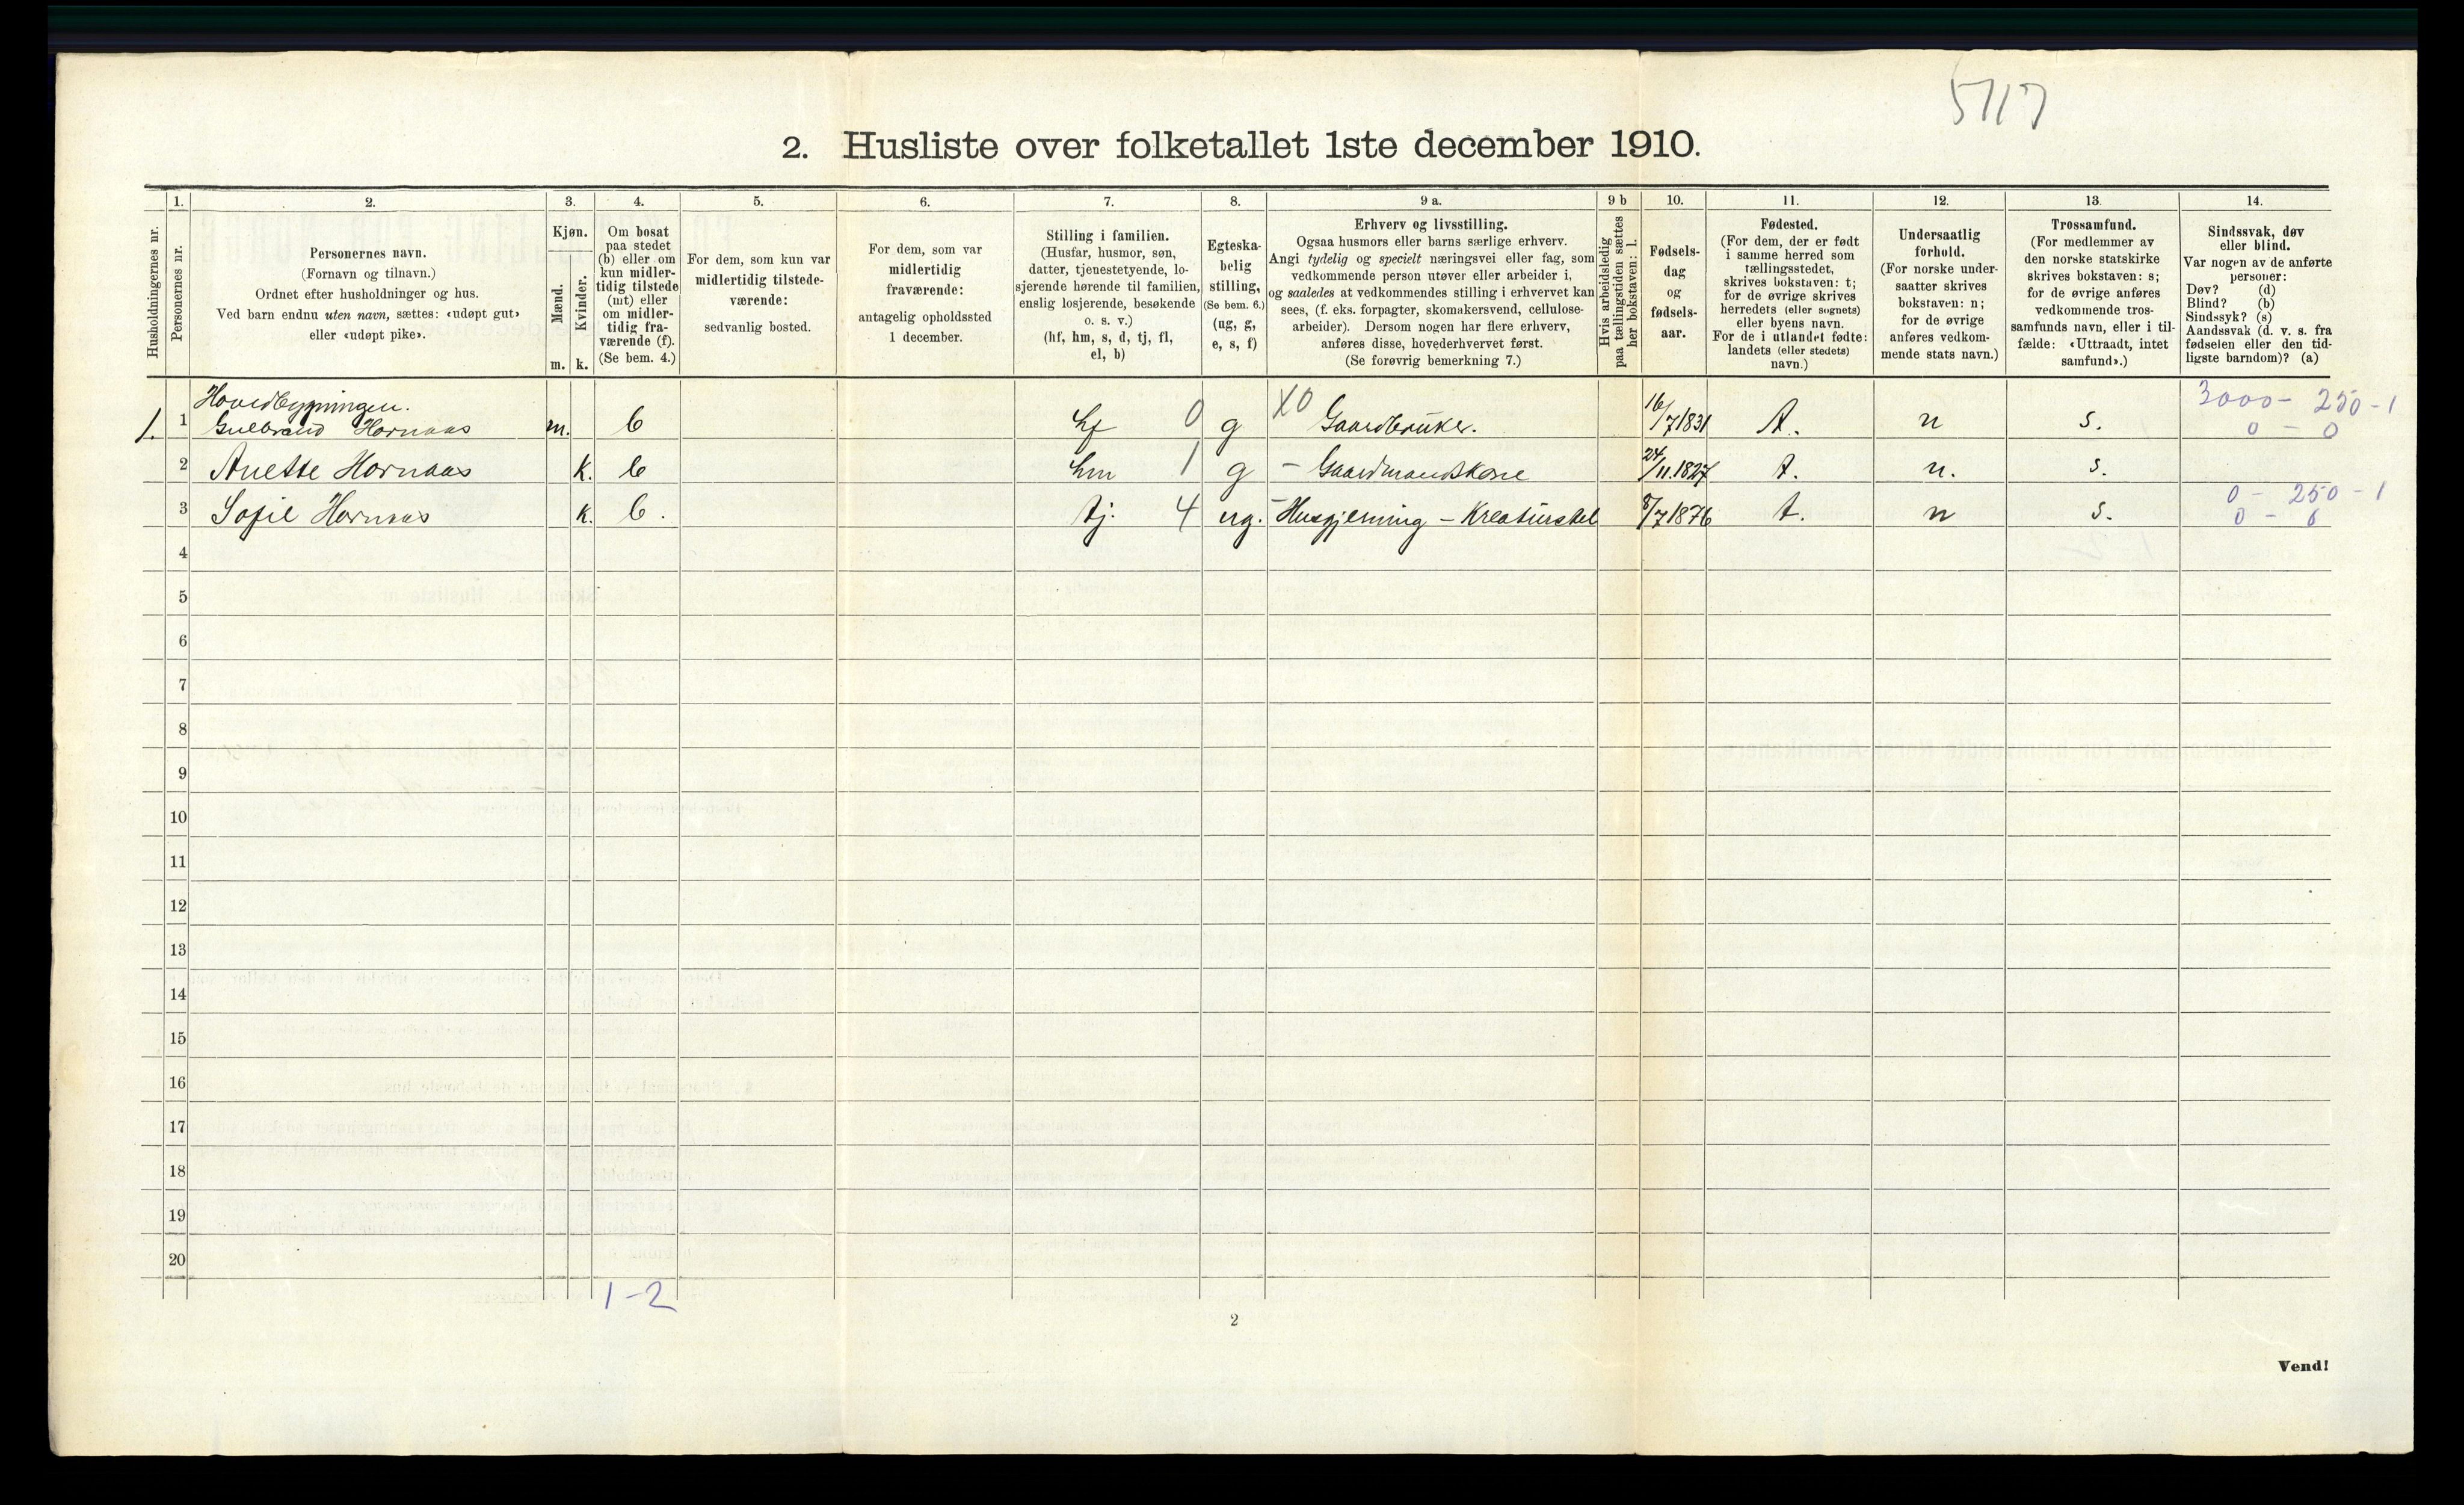 5117
2. Husliste over folketallet 1ste december 1910.
Husholdningernes nr.
1.
Personernes nr.
2.
Personernes navn.
(Fornavn og tilnavn.)
Ordnet efter husholdninger og hus.
Ved barn endnu uten navn, sættes: «udøpt gut»
eller «udøpt pike».
3.
Kjøn.
Mænd.
Kvinder.
m. k.
4.
Om bosat
paa stedet
(b) eller om
kun midler-
tidig tilstede
(mt) eller
om midler-
tidig fra-
værende (f).
(Se bem. 4.)
5.
For dem, som kun var
midlertidig tilstede-
værende:
sedvanlig bosted.
6.
For dem, som var
midlertidig
fraværende:
antagelig opholdssted
1 december.
7.
Stilling i familien.
(Husfar, husmor, søn,
datter, tjenestetyende, lo-
sjerende hørende til familien,
enslig losjerende, besøkende
o. s. v.)
(hf, hm, s, d, tj, fl,
el, b)
8.
Egteska-
belig
stilling,
(Se bem. 6.)
(ug, g,
e, s, f)
9 a.
Erhverv og livsstilling.
Ogsaa husmors eller barns særlige erhverv.
Angi tydelig og specielt næringsvei eller fag, som
vedkommende person utøver eller arbeider i,
og saaledes at vedkommendes stilling i erhvervet kan
sees, (f. eks. forpagter, skomakersvend, cellulose-
arbeider). Dersom nogen har flere erhverv,
anføres disse, hovederhvervet først.
(Se forøvrig bemerkning 7.)
9 b
Hvis arbeidsledig
paa tællingstiden sættes
her bokstaven: l.
10.
Fødsels-
dag
og
fødsels-
aar.
11.
Fødested.
(For dem, der er født
i samme herred som
tællingsstedet,
skrives bokstaven: t;
for de øvrige skrives
herredets (eller sognets)
eller byens navn.
For de i utlandet fødte:
landets (eller stedets)
navn.)
12.
Undersaatlig
forhold.
(For norske under-
saatter skrives
bokstaven: n;
for de øvrige
anføres vedkom-
mende stats navn.)
13.
Trossamfund.
(For medlemmer av
den norske statskirke
skrives bokstaven: s;
for de øvrige anføres
vedkommende tros-
samfunds navn, eller i til-
fælde: «Uttraadt, intet
samfund».)
14.
Sindssvak, døv
eller blind.
Var nogen av de anførte
personer:
Døv? (d)
Blind? (b)
Sindssyk? (s)
Aandssvak (d. v. s. fra
fødselen eller den tid-
ligste barndom)? (a)
Hovedbygningen. 3000 - 250 - 1
1. 1 Gulbrand Hornaas m. b hf 0 g X0 Gaardbruker. 16/7 1831 t. n s. 0 - 0
2 Anette Hornaas k. b hm 1 g - Gaardmandskone 24/11. 1827 t. n. s.
0 - 250 - 1
3 Sofie Hornaas k. b. tj. 4 ug. - Husgjerning - Kreaturstel 8/7 1876 t. n s. 0 - 0
4
5
6
7
8
9
10
11
12
13
14
15
16
17
18
19
20
1 - 2
2
Vend!